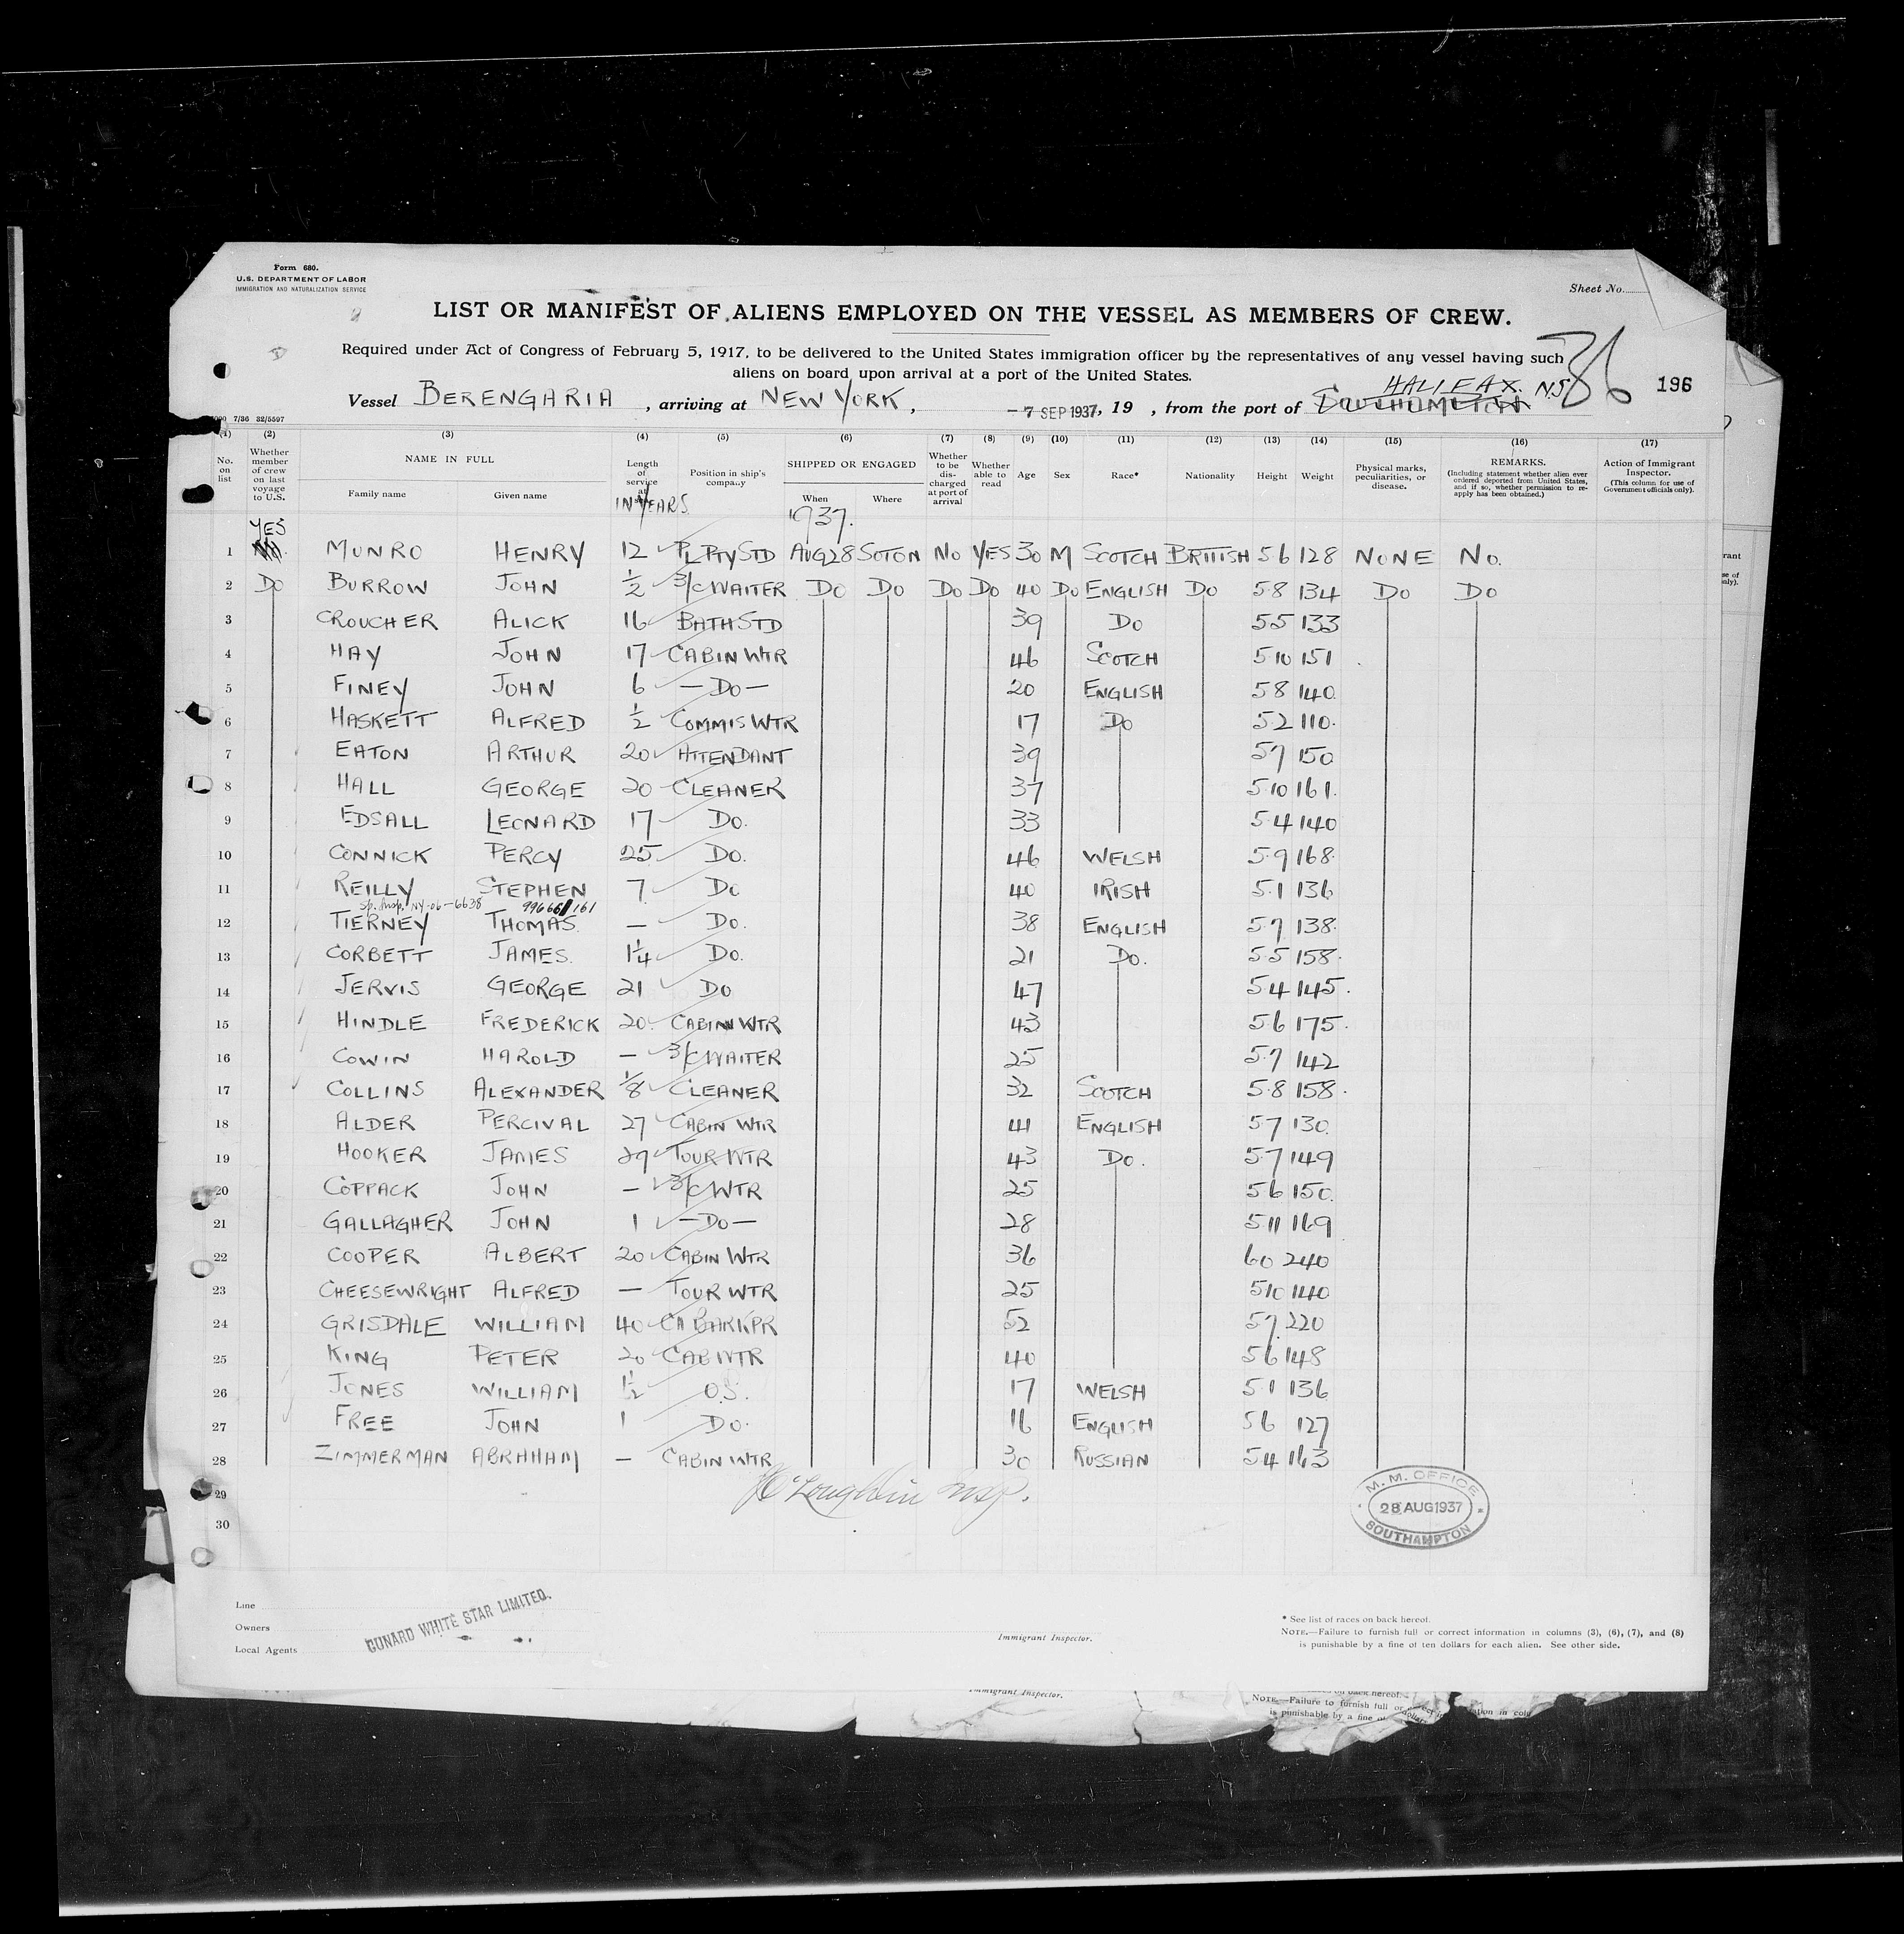 Form 680.
U.S. DEPARTMENT OF LABOR
IMMIGRATION AND NATURALIZATION SERVICE
Sheet No.
LIST OR MANIFEST OF ALIENS EMPLOYED ON THE VESSEL AS MEMBERS OF CREW.
Required under Act of Congress of February 5, 1917, to be delivered to the United States immigration officer by the representatives of any vessel having such
aliens on board upon arrival at a port of the United States.
36
196
HALIFAX. N.S
Vessel BERENGARIA , arriving at NEW YORK , -7 SEP 1937, 19 , from the port of SOUTHAMPTON
7/36 32/5597
(1) (2) (3) (4) (5) (6) (7) (8) (9) (10) (11) (12) (13) (14) (15) (16) (17)
No. on list
Whether member of crew on last voyage to U.S.
NAME IN FULL
Family name Given name
Length of service at
IN YEARS
Position in ship's company
SHIPPED OR ENGAGED
When Where
1937.
Whether to be discharged at port of arrival
Whether able to read
Age Sex Race* Nationality Height Weight
Physical marks, peculiarities, or disease.
REMARKS.
(Including statement whether alien ever ordered deported from United States, and if so, whether permission to reapply has been obtained.)
Action of Immigrant Inspector.
(This column for use of Government officials only).
YES
1 No. MUNRO HENRY 12 PL PTY STD AUG 28 SOTON NO YES 30 M SCOTCH BRITISH 5 6 128 NONE NO.
2 DO BURROW JOHN 1/2 3/C WAITER DO DO DO DO 40 DO ENGLISH DO 5 8 134 DO DO
3 CROUCHER ALICK 16 BATH STD 39 DO 5 5 133
4 HAY JOHN 17 CABIN WTR 46 SCOTCH 5 10 151
5 FINEY JOHN 6 — DO — 20 ENGLISH 5 8 140
6 HASKETT ALFRED 1/2 COMMIS WTR 17 DO 5 2 110.
7 EATON ARTHUR 20 ATTENDANT 39 5 7 150
8 HALL GEORGE 20 CLEANER 37 5 10 161.
9 EDSALL LEONARD 17 DO. 33 5 4 140
10 CONNICK PERCY 25 DO. 46 WELSH 5 9 168.
11 REILLY STEPHEN 7 DO 40 IRISH 5 1 136
12 TIERNEY THOMAS. — DO. 38 ENGLISH 5 7 138.
13 CORBETT JAMES. 1 1/4 DO. 21 DO. 5 5 158.
14 JERVIS GEORGE 21 DO 47 5 4 145.
15 HINDLE FREDERICK 20 CABIN WTR 43 5 6 175.
16 COWIN HAROLD — 3/C WAITER 25 5 7 142
17 COLLINS ALEXANDER 1/8 CLEANER 32 SCOTCH 5 8 158.
18 ALDER PERCIVAL 27 CABIN WTR 41 ENGLISH 5 7 130.
19 HOOKER JAMES 29 TOUR WTR 43 DO. 5 7 149
20 COPPACK JOHN — 3/C WTR 25 5 6 150.
21 GALLAGHER JOHN 1 — DO — 28 5 11 169
22 COOPER ALBERT 20 CABIN WTR 36 6 0 240
23 CHEESEWRIGHT ALFRED — TOUR WTR 25 5 10 140
24 GRISDALE WILLIAM 40 CA BARKPR 52 5 7 220
25 KING PETER 20 CAB WTR 40 5 6 148
26 JONES WILLIAM 1 1/2 O.S. 17 WELSH 5 1 136
27 FREE JOHN 1 DO. 16 ENGLISH 5 6 127
28 ZIMMERMAN ABRAHAM — CABIN WTR 30 RUSSIAN 5 4 163
29
30
McLoughlin Insp.
M. M. OFFICE
28 AUG 1937
SOUTHAMPTON
Line
Owners
Local Agents
CUNARD WHITE STAR LIMITED.
Immigrant Inspector.
* See list of races on back hereof.
NOTE.—Failure to furnish full or correct information in columns (3), (6), (7), and (8)
is punishable by a fine of ten dollars for each alien. See other side.
Immigrant Inspector.
NOTE.—Failure to furnish full or
is punishable by a fine